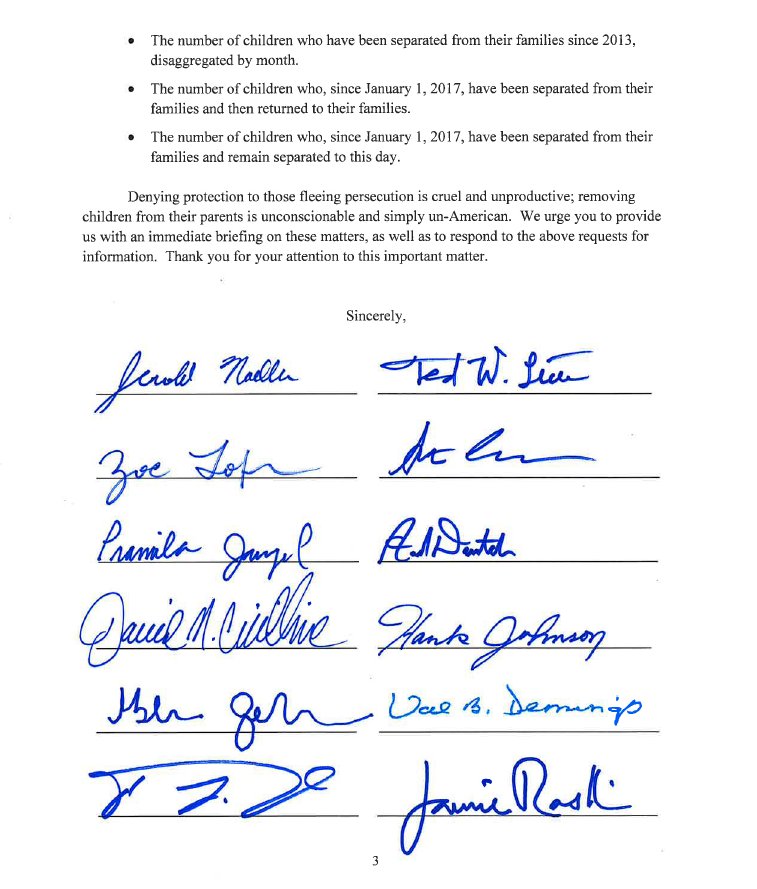 • The number of children who have been separated from their families since 2013,
disaggregated by month.
• The number of children who, since January 1, 2017, have been separated from their
families and then returned to their families.
• The number of children who, since January 1, 2017, have been separated from their
families and remain separated to this day.
Denying protection to those fleeing persecution is cruel and unproductive; removing
children from their parents is unconscionable and simply un-American. We urge you to provide
us with an immediate briefing on these matters, as well as to respond to the above requests for
information. Thank you for your attention to this important matter.
Sincerely,
Jerrold Nadler Ted W. Lieu
Zoe Lofgren
Pramila Jayapal
David N. Cicilline Hank Johnson
Val B. Demings
Jamie Raskin
3